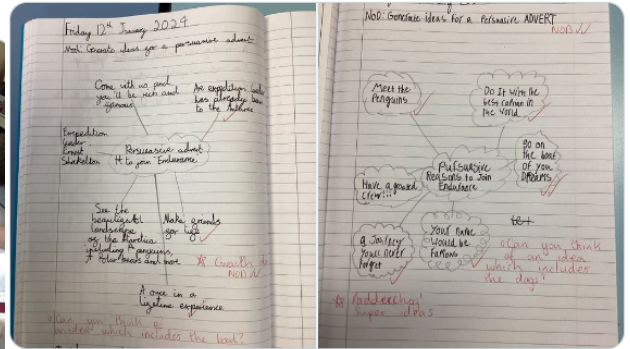 Friday 12th January 2024
NoD: Generate ideas for a persuasive advert
Come with us and
you'll be rich and
famous
An expedition
has already been
to the
Expedition
leader
Ernest
Shakelton
Persuasive advert
to join 'Endurance'
See the
landscape
of the
including penguins,
polar bears and more
Make friends
for life
Growth
NoD
A once in a
lifetime experience
Can you think of
an idea which includes the boat?
NoD: Generate ideas for a Persuasive ADVERT
NOD
Meet the
Penguins
Do It with the
best captain in
the world
go on
the boat
of your
DReams
Persuasive
Reasons to Join
Endurance
Have a good
crew!!!
a Journey
you'll never
forget
Your name
would be
famous
Can you think
of an idea
which includes
the dogs?
Super ideas